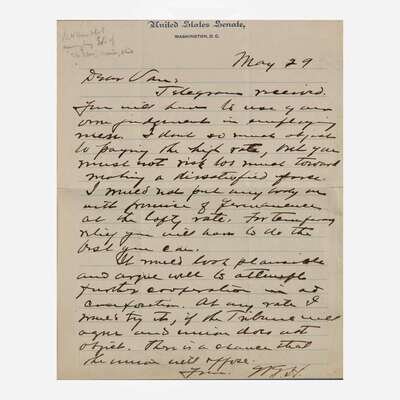 United States Senate,
WASHINGTON, D.C.
May 29
Dear Van:
Telegram received.
You will have to use your
own judgement in employing
men. I dont so much object
to paying the high rate, but you
must not risk too much toward
making a dissatisfied force.
I would not put any body on
with promise of permanence
at the lofty rate. For temporary
relief you will have to do the
best you can.
It would look plausible
and argue well to attempt
further cooperation in ad
composition. At any rate I
would try it, if the Tribune will
agree and union does not
object. There is a chance that
the union will oppose.
Yours. W G H